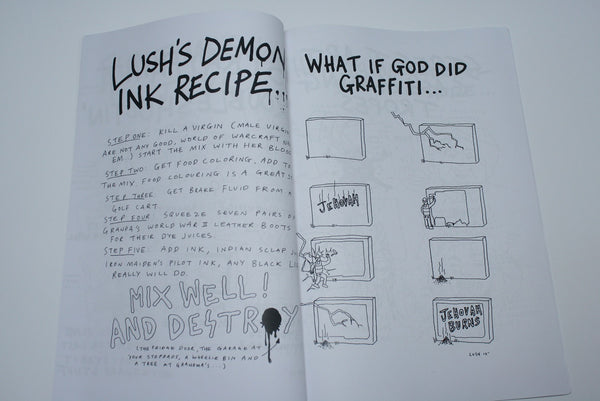 LUSH'S DEMON
INK RECIPE...
STEP ONE: KILL A VIRGIN (MALE VIRGINS
ARE NOT ANY GOOD, WORLD OF WARCRAFT
EM.) START THE MIX WITH HER BLOOD
STEP TWO: GET FOOD COLORING, ADD TO
THE MIX. FOOD COLOURING IS A GREAT
STEP THREE: GET BRAKE FLUID FROM A
GOLF CART.
STEP FOUR: SQUEEZE SEVEN PAIRS OF
GRANPA'S WORLD WAR II LEATHER BOOTS
FOR THEIR DYE JUICES.
STEP FIVE: ADD INK, INDIAN SCLAP
IRON MAIDEN'S PILOT INK, ANY BLACK
REALLY WILL DO.
MIX WELL!
AND DESTROY
(THE FRIDGE DOOR, THE GARAGE AT
YOUR STEPDADS, A WHEELIE BIN AND
A TREE AT GRANDMA'S...)
WHAT IF GOD DID
GRAFFITI...
JEHOVAH
JEHOVAH
BURNS
LUSH